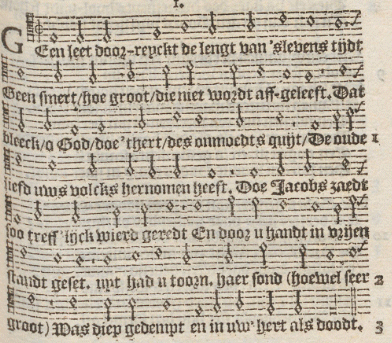 I.
GEen leet door-reyckt de lengt van 'slevens tijdt
Geen smert/hoe groot/die niet wordt aff-geleeft. Dat
bleeck/o God/doe 't hert/des onmoedts quijt/De oude 1
liefd uws volcks hernomen heeft. Doe Jacobs zaedt
soo treff'lijck wierd geredt En door u handt in vrijen
standt geset. uyt had u toorn. haer sond (hoewel seer 2
groot) Was diep gedempt en in uw' hert als doodt. 3